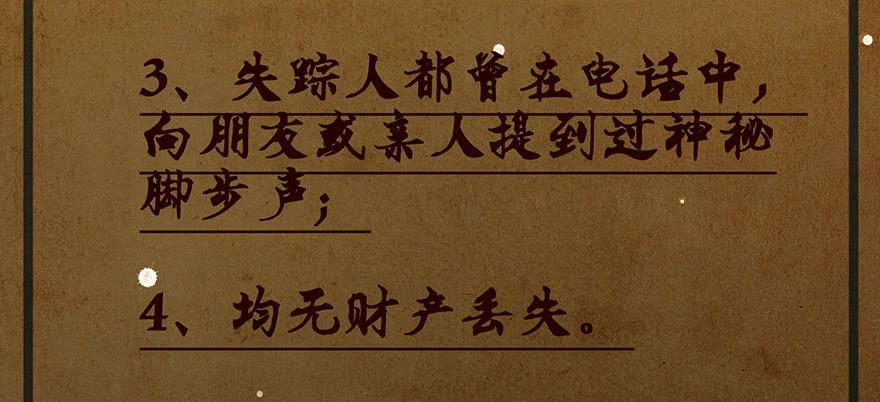 3、失踪人都曾在电话中，
向朋友或亲人提到过神秘
脚步声；
4、均无财产丢失。